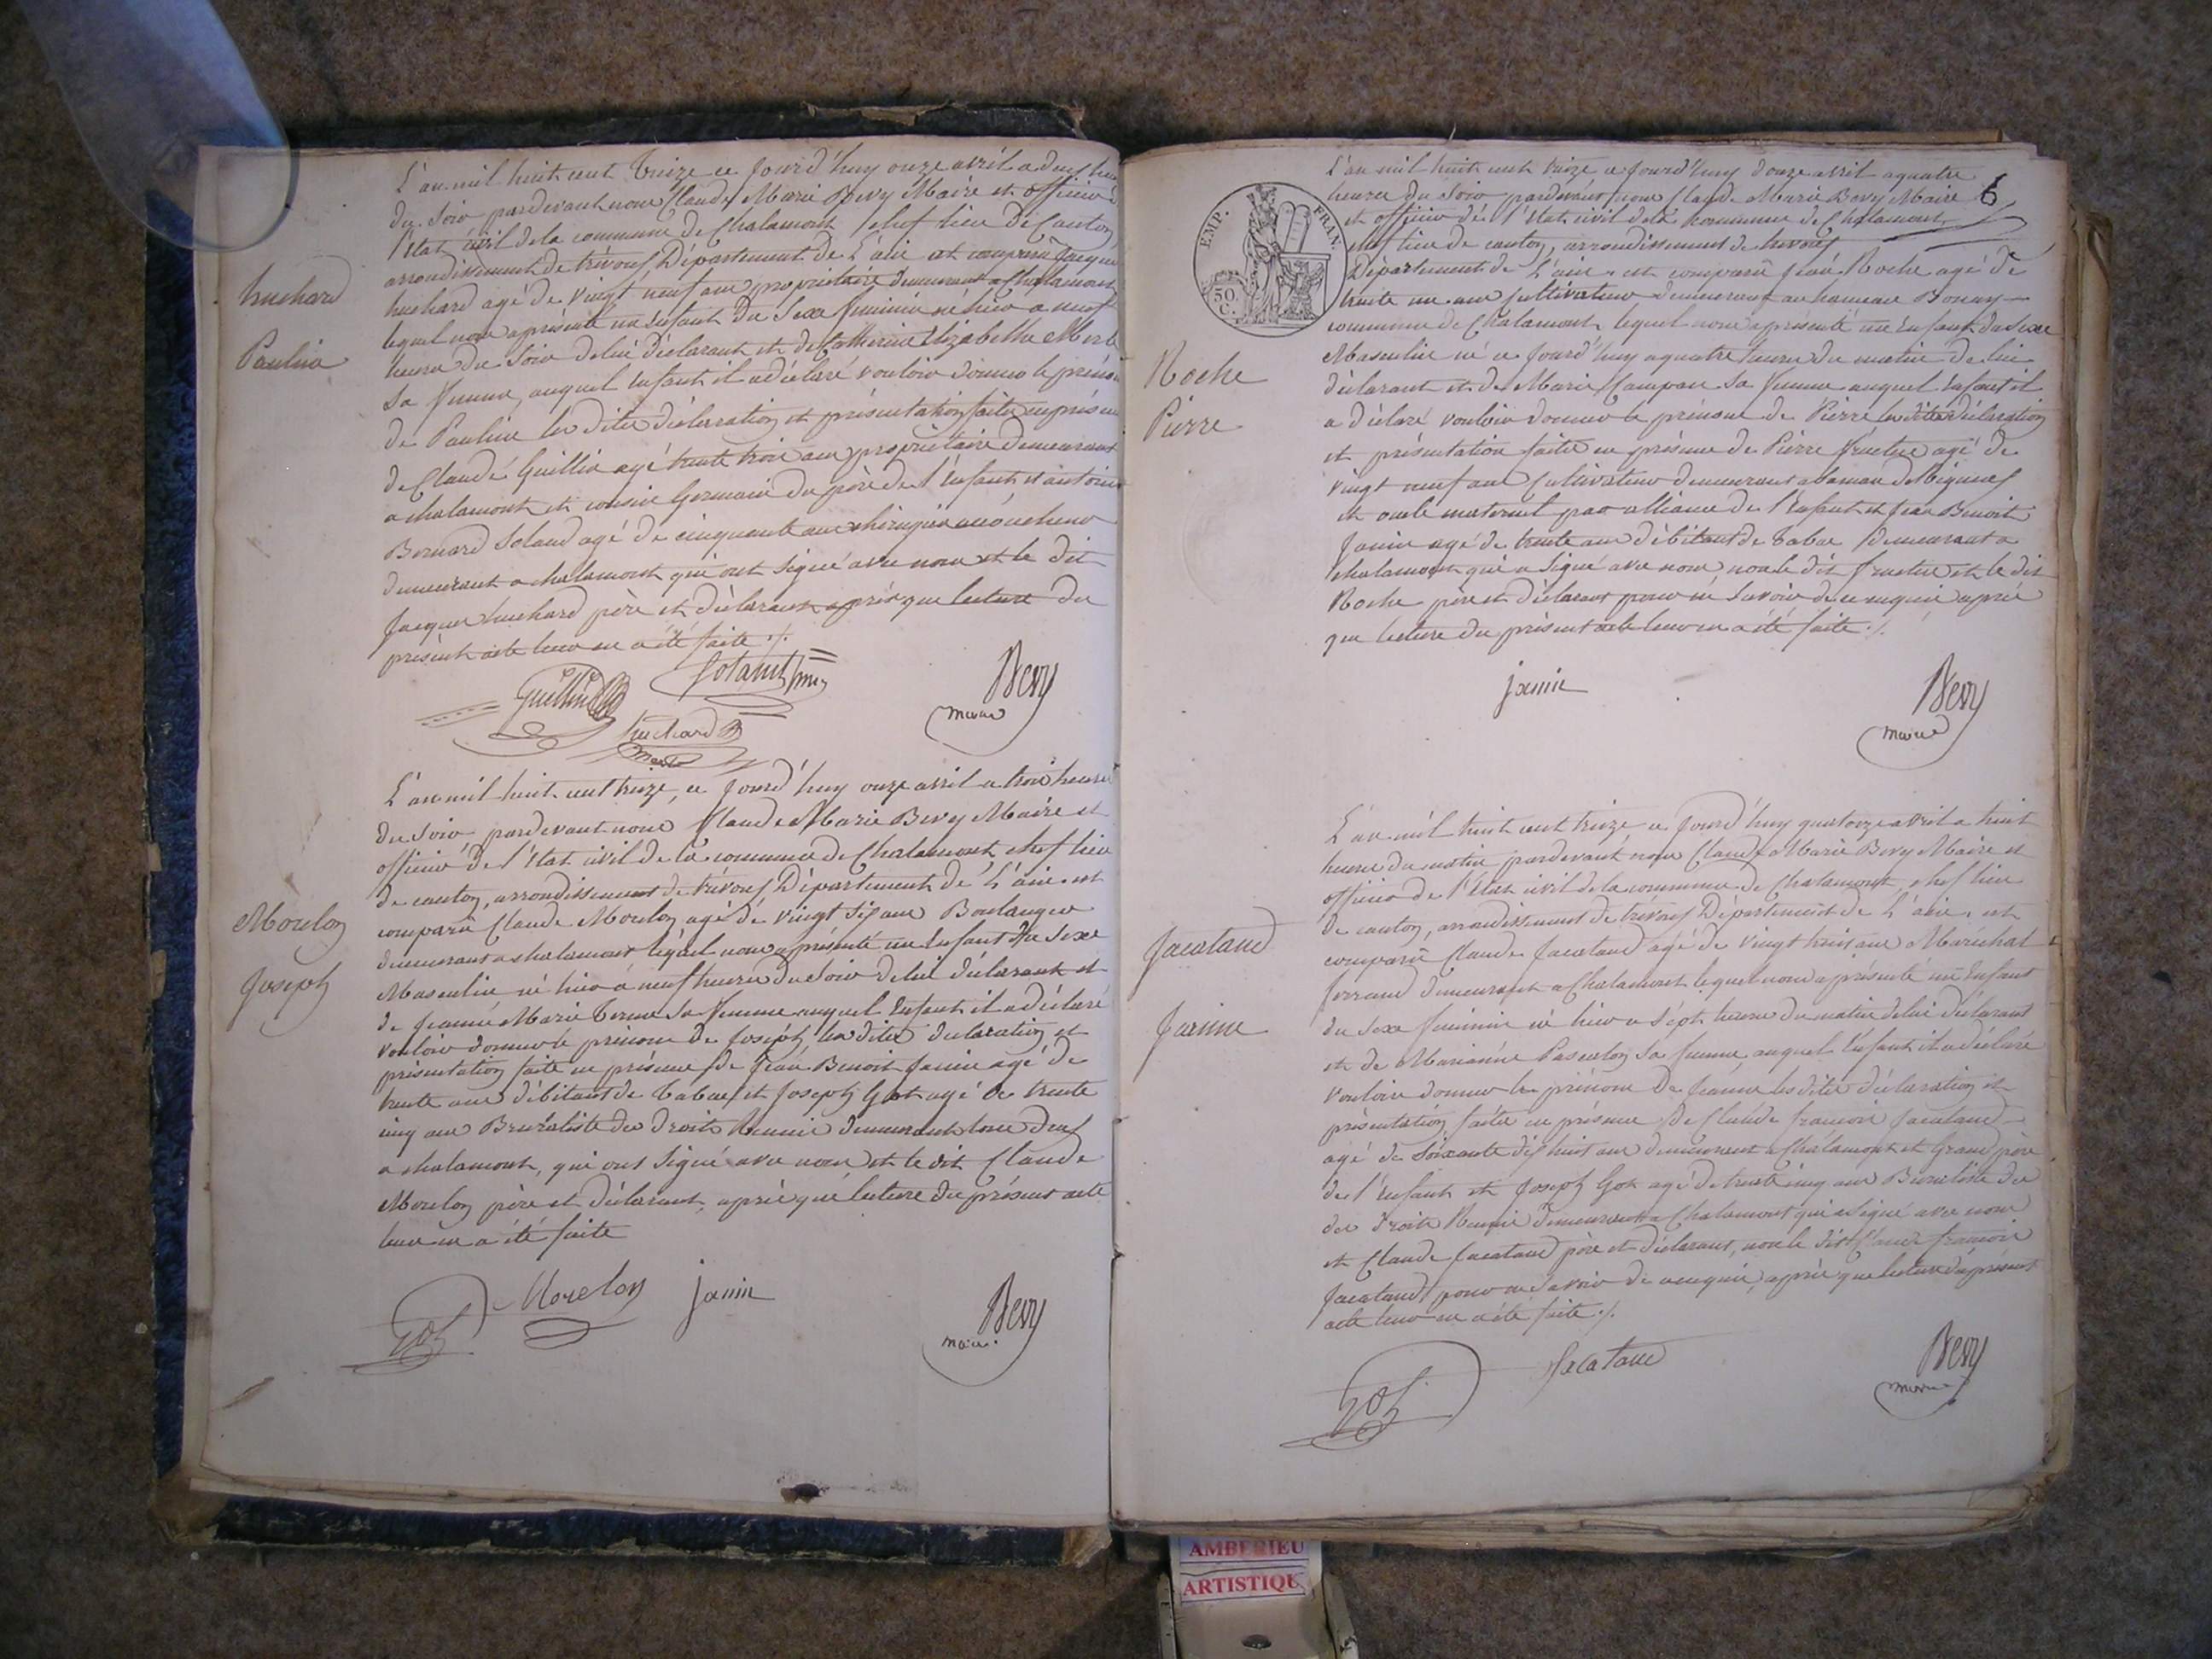 L'an mil huit cent treize ce Jourd'huy onze avril a deux heu
du soir pardevant nous Claude Marie Bevy Maire et officier
l'Etat civil de la commune de Chalamont chef lieu de Canton
arrondissement de trévoux Département de L'ain est comparu Jacque
huchard agé de vingt neuf ans propriétaire demeurant a Chalamont
lequel nous a présenté un enfant du Sexe féminin né hier a neuf
heures du soir de lui déclarant et de Catherine Elizabethe
Sa femme, auquel enfant il a déclaré vouloir donner le préno
de Pauline les dites déclaration et présentation faites en présen
de Claude Guillin agé trente trois ans propriétaire demeurant
a chalamont et cousin Germain du père de l'enfant et antoine
Bernard Soland agé de cinquante ans chirurgien accoucheur
demeurant a chalamont qui ont signé avec nous et le dit
Jacques huchard père et déclarant après que lecture du
présent acte leur en a été faite ./.
huchard
Pauline
Guillin
huchard
Bevy
maire
L'an mil huit cent treize, ce Jourd'huy onze avril a trois heures
du soir, pardevant nous Claude Marie Bevy Maire et
officier de l'Etat civil de la commune de Chalamont chef lieu
de canton, arrondissement de trévoux Département de L'ain. est
comparu Claude Morelon agé de vingt six ans Boulanger
demeurant a chalamont lequel nous a présenté un Enfant du Sexe
Masculin né hier a neuf heures du Soir de lui déclarant et
de Jeanne Marie Sa femme auquel Enfant il a déclaré
vouloir donner le prénom de Joseph les dites declaration et
présentation faite en présence de Jean Benoit Janin agé de
trente ans débitant de Tabac et Joseph Got agé de trente
cinq ans Buraliste des droits Reunis demeurant tous deux
a chalamont, qui ont signé avec nous et le dit Claude
Morelon père et déclarant, après que lecture du présent acte
leur en a été faite
Morelon
Joseph
Got
Morelon
janin
Bevy
maire.
6
EMP. FRAN.
50
C.
L'an mil huit cent treize ce Jourd'huy douze avril a quatre
heures du Soir pardevant nous Claude Marie Bevy Maire
et officier de l'Etat civil de la Commune de Chalamont,
chef lieu de canton, arrondissement de trévoux
Département de L'ain. est comparu Jean Roche agé de
trente un ans Cultivateur demeurant au hameau Bonay
commune de Chalamont lequel nous a présenté un Enfant du Sexe
Masculin né ce Jourd'huy a quatre heures du matin de lui
déclarant et de Marie Sa femme auquel Enfant il
a déclaré vouloir donner le prénom de Pierre les dites déclaration
et présentation faites en présence de Pierre agé de
vingt neuf ans Cultivateur demeurant
et oncle maternel par alliance de l'Enfant et Jean Benoit
Janin agé de trente ans débitant de Tabac demeurant a
chalamont qui a signé avec nous non le dit et le dit
Roche père et déclarant pour ne savoir de ce enquis après
que lecture du présent acte leur en a été faite ./.
Roche
Pierre
janin
Bevy
maire
L'an mil huit cent treize ce Jourd'huy quatorze avril a huit
heures du matin pardevant nous Claude Marie Bevy Maire et
officier de l'Etat civil de la commune de Chalamont, chef lieu
de canton, arrondissement de trévoux Département de L'ain. est
comparu Claude Jacataud agé de vingt huit ans Maréchal
ferrand demeurant a Chalamont lequel nous a présenté un Enfant
du Sexe féminin né hier a sépt heures du matin de lui déclarant
et de Marianne Sa femme, auquel Enfant il a déclaré
vouloir donner le prénom de Jeanne les dites déclaration et
présentation faites en présence de Claude françois Jacataud
agé de Soixante dix huit ans demeurant a Chalamont et Grand père
de l'Enfant et Joseph Got agé de trente cinq ans Buraliste des
des droits Reunis demeurant a Chalamont qui a signé avec nous
et Claude Jacataud père et déclarant, non le dit Claude françois
Jacataud pour ne Savoir de ce enquis, après que lecture du présent
acte leur en a été faite ./.
Jacataud
Jeanne
Got
Jacataud
Bevy
maire
AMBERIEU
ARTISTIQUE